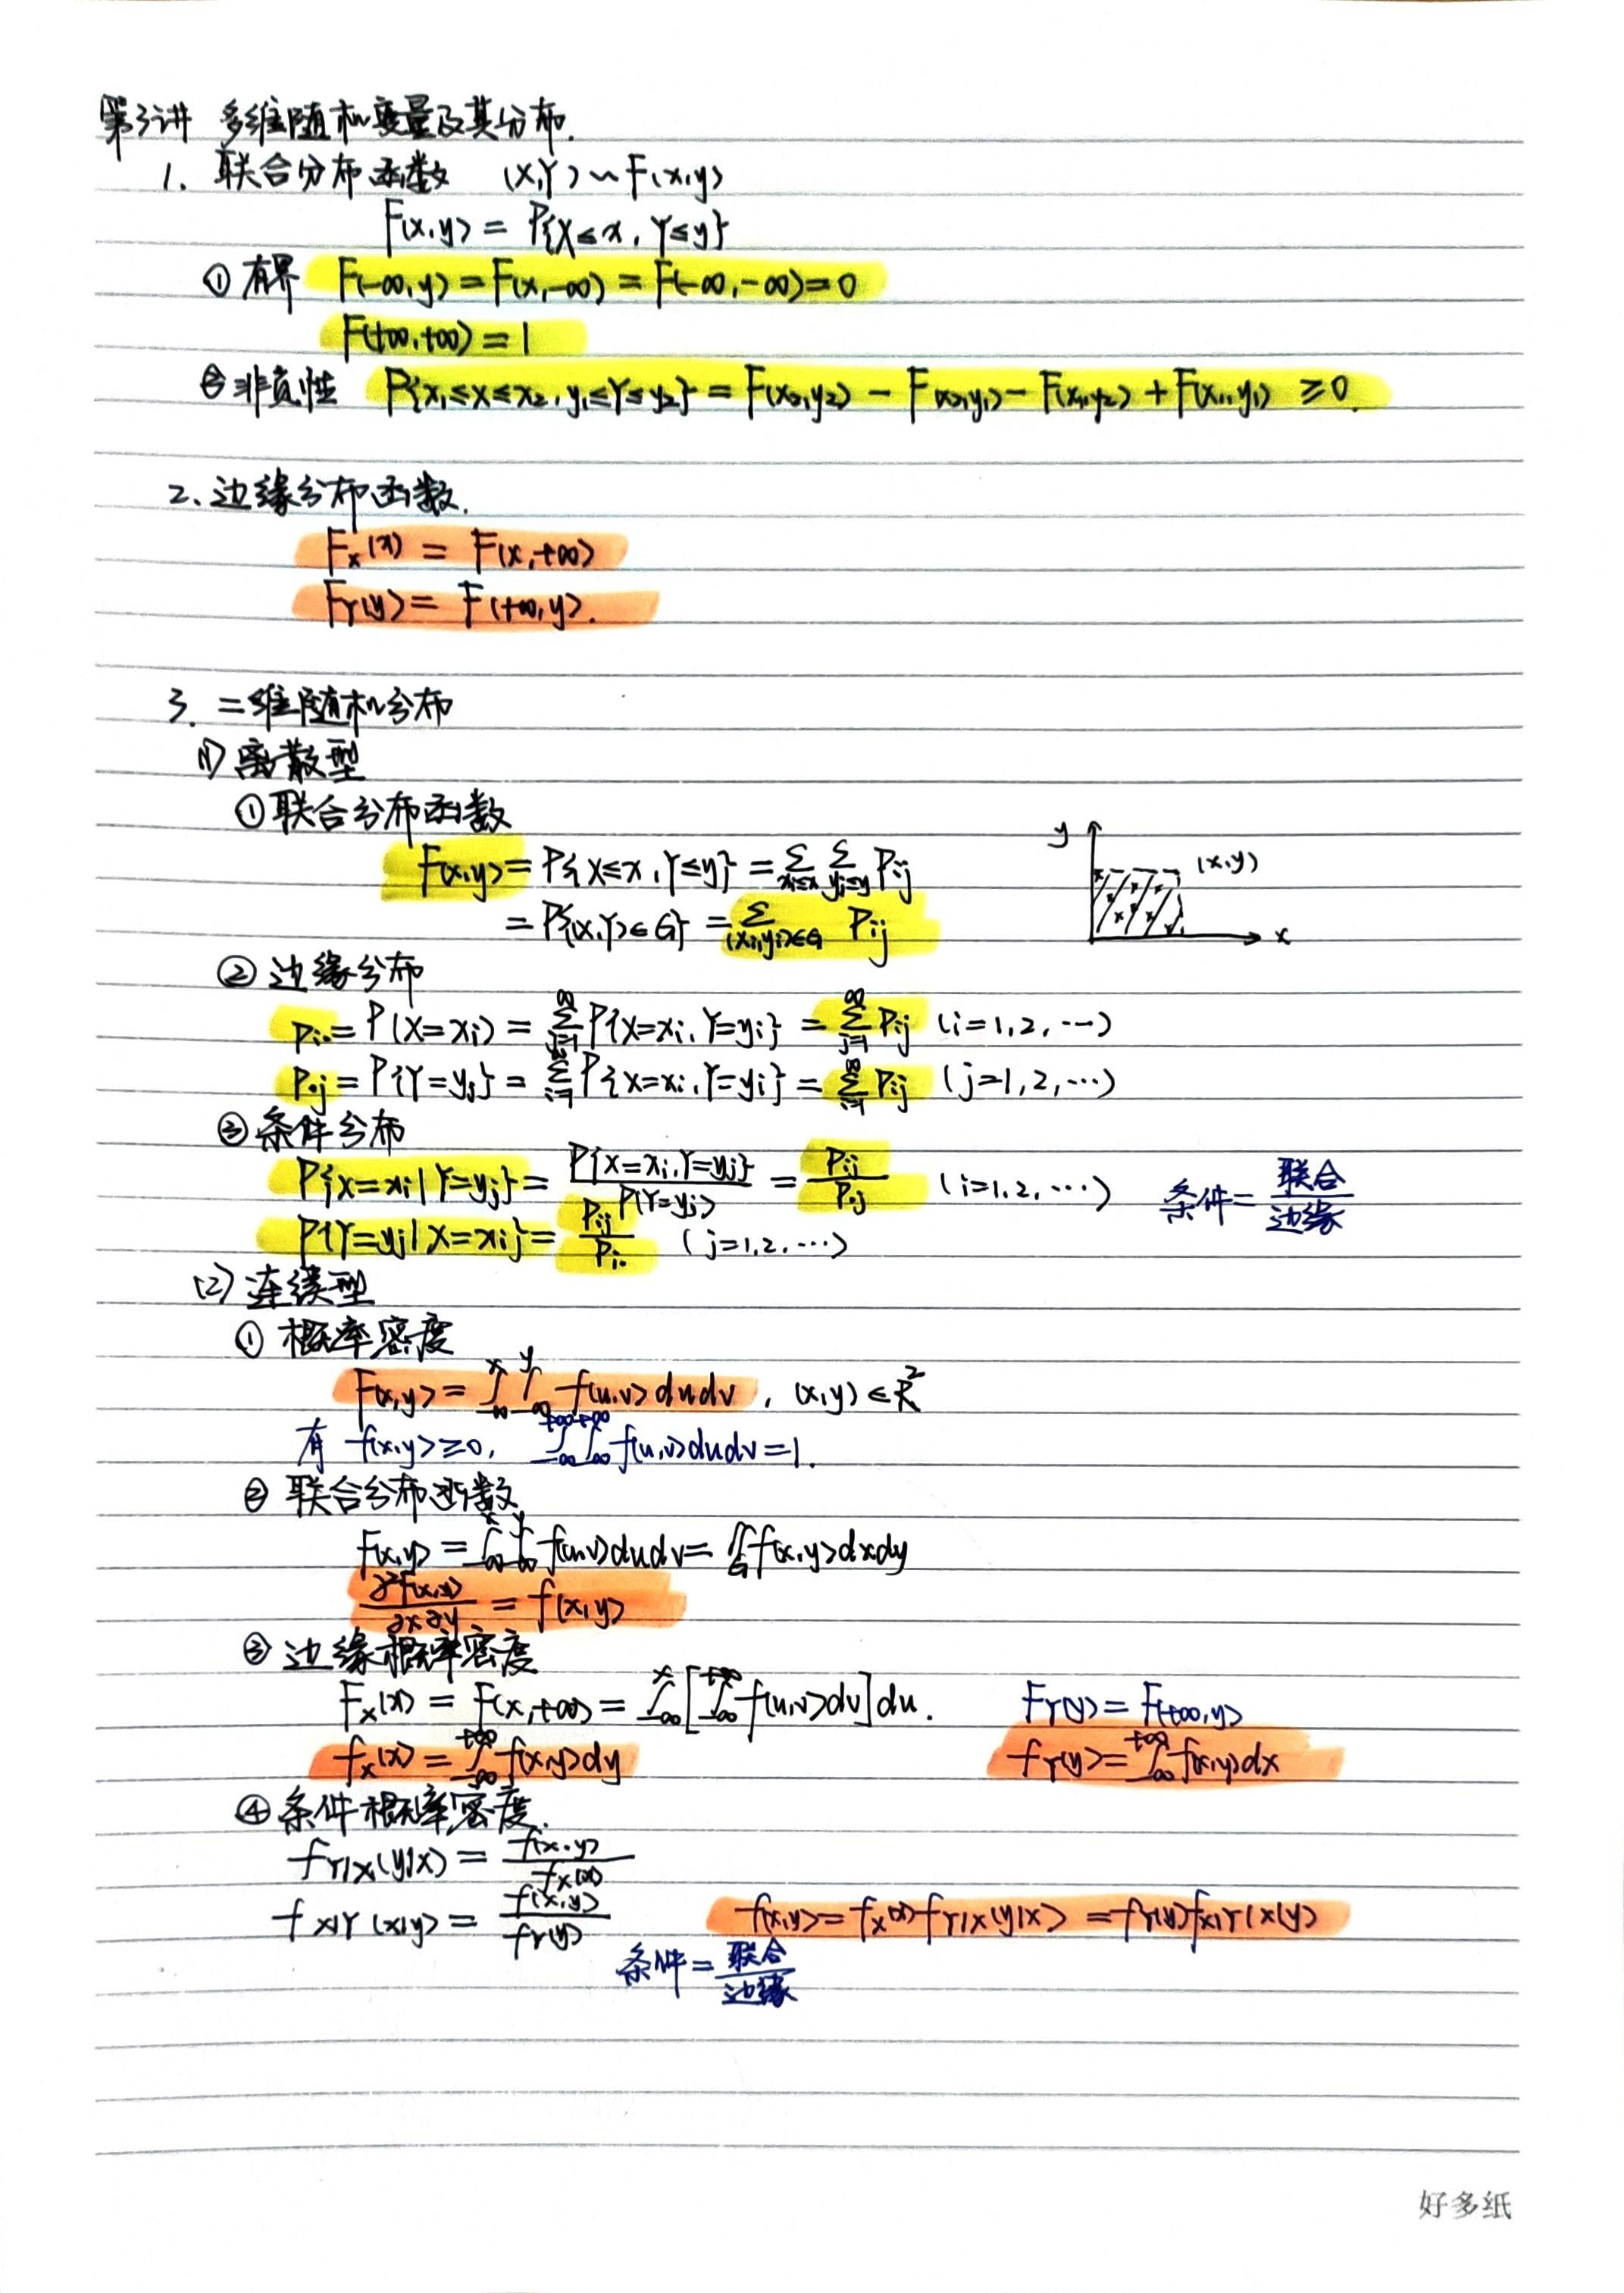 第3讲 多维随机变量及其分布.
1. 联合分布函数 (X,Y)~F(x,y)
F(x,y) = P{X≤x, Y≤y}
① 有界 F(-∞,y)=F(x,-∞)=F(-∞,-∞)=0
F(+∞,+∞)=1
② 非负性 P{x₁≤X≤x₂, y₁≤Y≤y₂} = F(x₂,y₂) - F(x₂,y₁) - F(x₁,y₂) + F(x₁,y₁) ≥0.
2. 边缘分布函数.
Fx(x) = F(x,+∞)
FY(y) = F(+∞,y).
3. 二维随机分布
(1) 离散型
① 联合分布函数
F(x,y) = P{X≤x, Y≤y} = Σ_{xi≤x} Σ_{yj≤y} Pij
= P{(X,Y)∈G} = Σ_{(xi,yj)∈G} Pij
y (x,y) x
② 边缘分布
Pi. = P(X=xi) = Σ_{j=1}^{∞} P{X=xi, Y=yj} = Σ_{j=1}^{∞} Pij (i=1,2,…)
P.j = P{Y=yj} = Σ_{i=1}^{∞} P{X=xi, Y=yj} = Σ_{i=1}^{∞} Pij (j=1,2,…)
③ 条件分布
P{X=xi|Y=yj} = P{X=xi, Y=yj}/P(Y=yj) = Pij/P.j (i=1,2,…) 条件=联合/边缘
P{Y=yj|X=xi} = Pij/Pi. (j=1,2,…)
(2) 连续型
① 概率密度
F(x,y) = ∫_{-∞}^{x} ∫_{-∞}^{y} f(u,v)dudv, (x,y)∈R²
有 f(x,y)≥0, ∫_{-∞}^{+∞} ∫_{-∞}^{+∞} f(u,v)dudv=1.
② 联合分布函数
F(x,y) = ∫_{-∞}^{x} ∫_{-∞}^{y} f(u,v)dudv = ∬_G f(x,y)dxdy
∂²F(x,y)/∂x∂y = f(x,y)
③ 边缘概率密度
Fx(x) = F(x,+∞) = ∫_{-∞}^{x} [∫_{-∞}^{+∞} f(u,v)dv]du. FY(y) = F(+∞,y)
fx(x) = ∫_{-∞}^{+∞} f(x,y)dy fY(y) = ∫_{-∞}^{+∞} f(x,y)dx
④ 条件概率密度.
fY|X(y|x) = f(x,y)/fx(x)
fX|Y(x|y) = f(x,y)/fY(y) f(x,y) = fx(x)fY|X(y|x) = fY(y)fX|Y(x|y)
条件=联合/边缘
好多纸